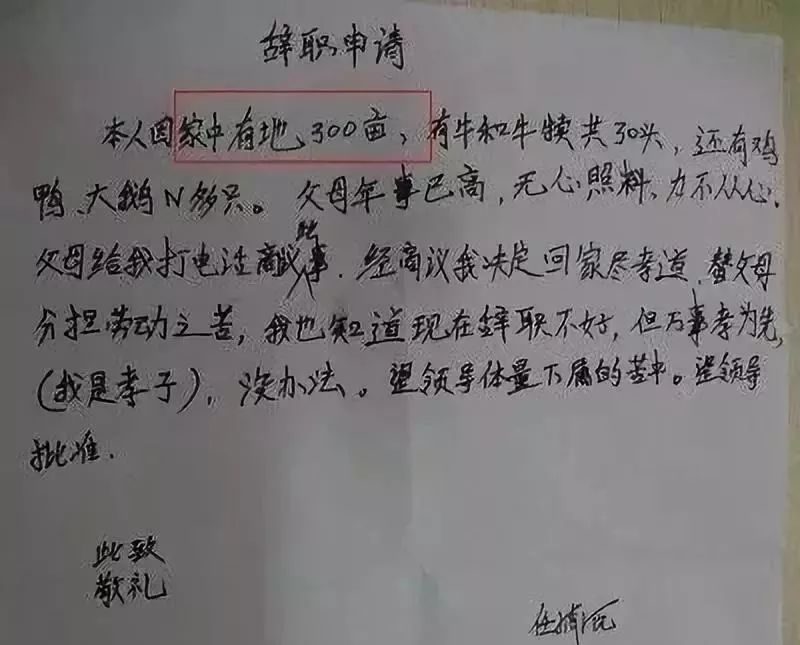 辞职申请
本人因家中有地、300亩、有牛和牛犊共30头，还有鸡
鸭、大鹅N多只。父母年事已高，无心照料、力不从心、
父母给我打电话商议此事．经商议我决定回家尽孝道，替父母
分担劳动之苦，我也知道现在辞职不好，但万事孝为先，
(我是孝子)，没办法。望领导体量下属的苦中。望领导
批准．
此致
敬礼